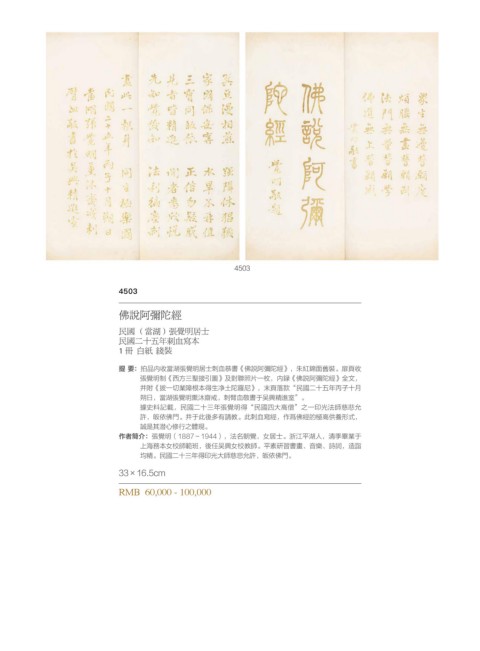 眾生無邊誓願度
煩惱無盡誓願斷
法門無量誓願學
佛道無上誓願成
覺明敬書
佛說阿彌
陀經
覺明敬題
4503
4503
佛說阿彌陀經
民國（當湖）張覺明居士
民國二十五年刺血寫本
1 冊 白紙 綫裝
提 要：拍品內收當湖張覺明居士刺血恭書《佛說阿彌陀經》，朱紅錦面舊裝。扉頁收
張覺明制《西方三聖接引圖》及對聯照片一枚，內錄《佛說阿彌陀經》全文，
并附《拔一切業障根本得生淨土陀羅尼》，末頁落款“民國二十五年丙子十月
朔日，當湖張覺明熏沐齋戒，刺臂血敬書于吳興精進室”。
據史料記載，民國二十三年張覺明得“民國四大高僧”之一印光法師慈悲允
許，皈依佛門，并于此後多有請教。此刺血寫經，作爲佛經的極高供養形式，
誠是其潛心修行之體現。
作者簡介：張覺明（1887－1944），法名朝覺，女居士。浙江平湖人，清季畢業于
上海務本女校師範班，後任吳興女校教師。平素研習書畫，音樂、詩詞，造詣
均精。民國二十三年得印光大師慈悲允許，皈依佛門。
33×16.5cm
RMB 60,000 - 100,000